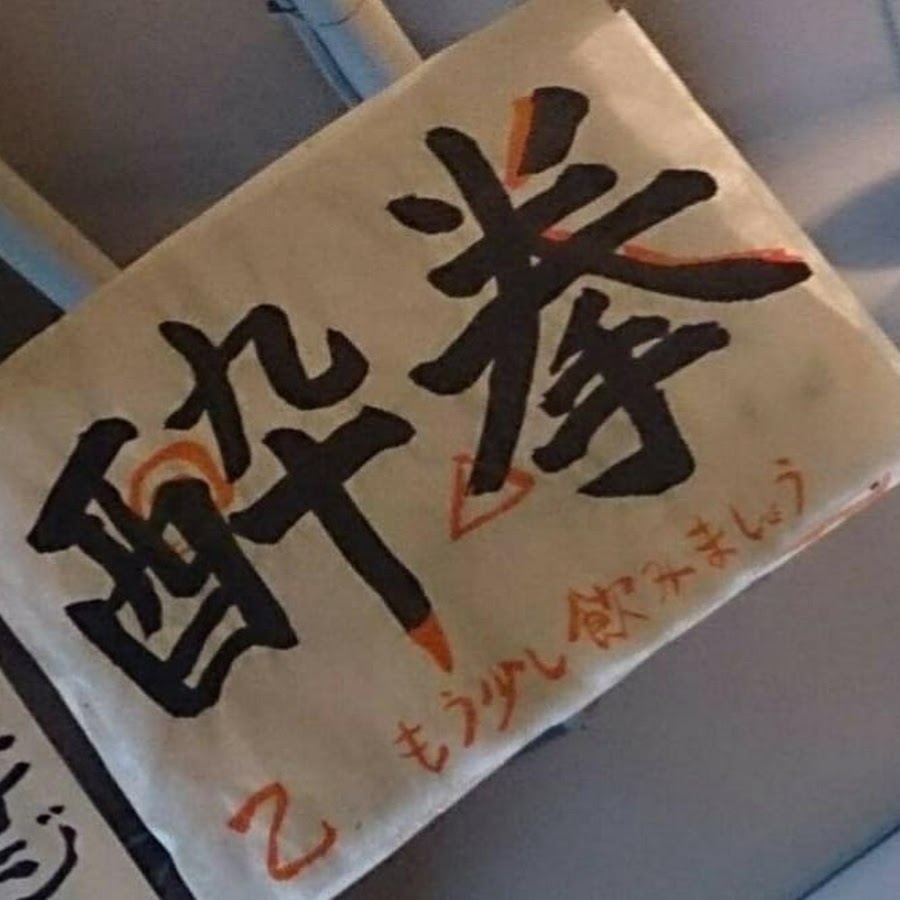 酔拳
もう少し飲みましょう
乙